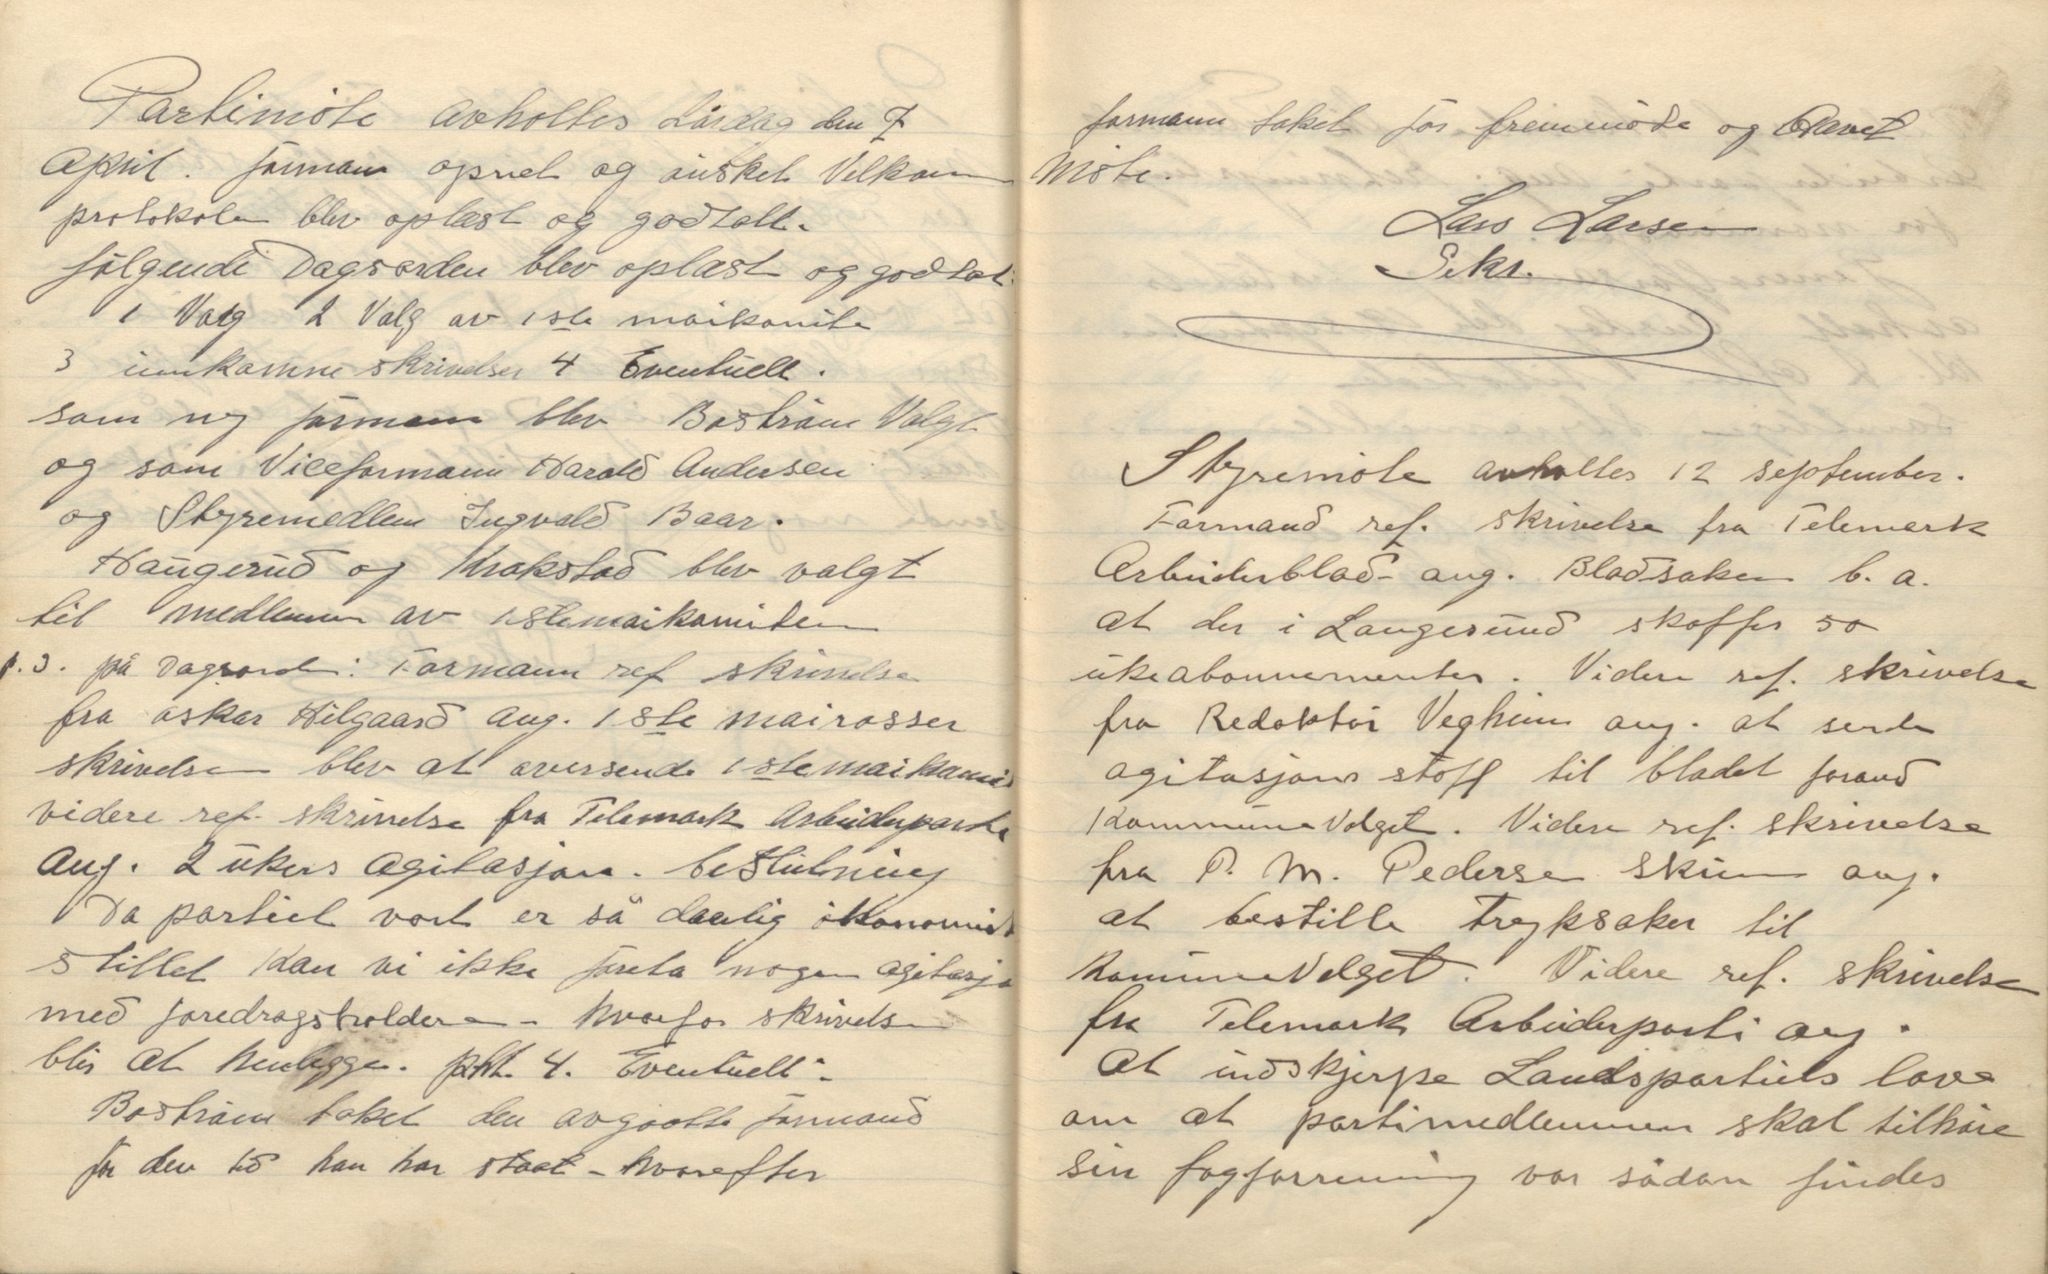 Partimöte avholtes Lördag den 7
April. formann opnet og önsket Velkommen
protokolen blev oplæst og godtatt.
følgende Dagsorden blev oplæst og godtat:
1 Valg 2 Valg av 1ste maikomite
3 innkomne skrivelser 4 Eventuelt.
som ny formann blev Boström Valgt
og som Viceformann Harald Andersen
og Styremedlem Ingvald Baar.
Haugerud og Krokstad blev valgt
til medlemmer av 1stemaikomiteen
p. 3. på Dagsorden: Formann ref skrivelse
fra Oskar Hilgaard ang. 1ste mairosser
skrivelsen blev at oversende 1stemaikomite
videre ref. skrivelse fra Telemark Arbeiderparti
ang. 2 ukers agitasjon. beslutning
Da partiet vort er så daarlig ökonomisk
stillet kan vi ikke företa nogen agitasjon
med foredragsholdere - hvorfor skrivelsen
blir at henlegge. pkt 4. Eventuelt -
Boström taket den avgaatte formand
for den tid han har staat - hvorefter
formann taket for fremmöde og hævet
möte.
Lars Larsen
Sekr.
Styremöte avholtes 12 september.
Formand ref. skrivelse fra Telemark
Arbeiderblad - ang. Bladsaken b. a.
at der i Langesund skaffes 50
ukeabonnementer. Videre ref. skrivelse
fra Redaktör Vegheim ang. at sende
agitasjons stoff til bladet forand
Kommunevalget. Videre ref. skrivelse
fra P. M. Pedersen Skien ang.
at bestille tryksaker til
KommuneValget. Videre ref. skrivelse
fra Telemark Arbeiderparti ang.
At indskjerpe Landspartiets love
om at partimedlemmer skal tilhöre
sin fagforrening vor sådan findes